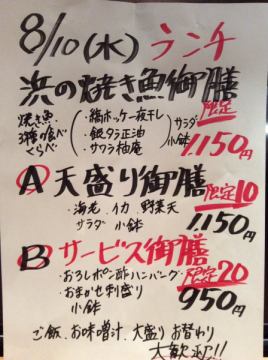 8/10(水) ランチ
浜の焼き魚御膳
焼き魚
3種の食べ
くらべ
・縞ホッケ一夜干し
・銀ダラ正油
・サワラ柚庵
サラダ
小鉢
限定
1,150円
A 天盛り御膳 限定10
・海老 イカ 野菜天
サラダ 小鉢
1,150円
B サービス御膳 限定20
・おろしポン酢ハンバーグ
・おまかせ刺盛り
小鉢
950円
ご飯、お味噌汁、大盛り お替わり
大歓迎!!